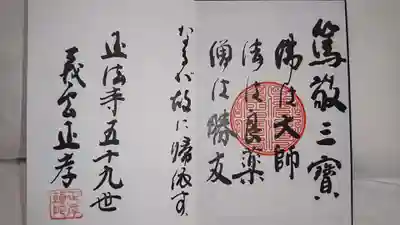 篤敬三寶
佛は大師
法は良薬
僧は勝友
なるが故に帰依す
正法寺五十九世
義公正孝